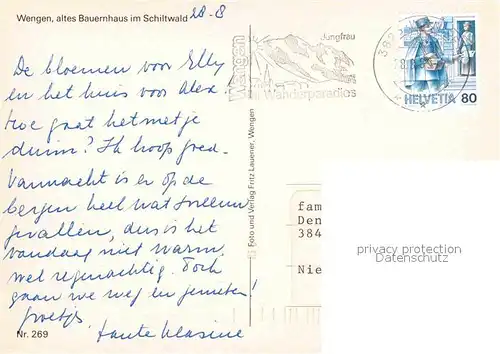 Wengen, altes Bauernhaus im Schiltwald
28-8
De bloemen voor Elly
en het huis voor Alex
hoe gaat het met je
duim? Ik hoop goed.
Vannacht is er op de
bergen heel wat sneeuw
gevallen, dus is het
vandaag niet warm
wel regenachtig. Toch
gaan we weg en genieten!
Groetjes
tante Klasine
Nr. 269
Foto und Verlag Fritz Lauener, Wengen
Wengen
Jungfrau
Wanderparadies
382
HELVETIA 80
fam
Den
384
Nie
privacy protection
Datenschutz